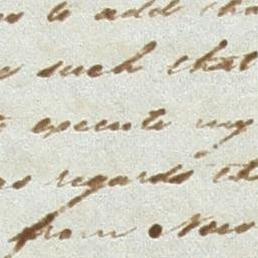 to add tha
such that
execute my
as regards th
from New